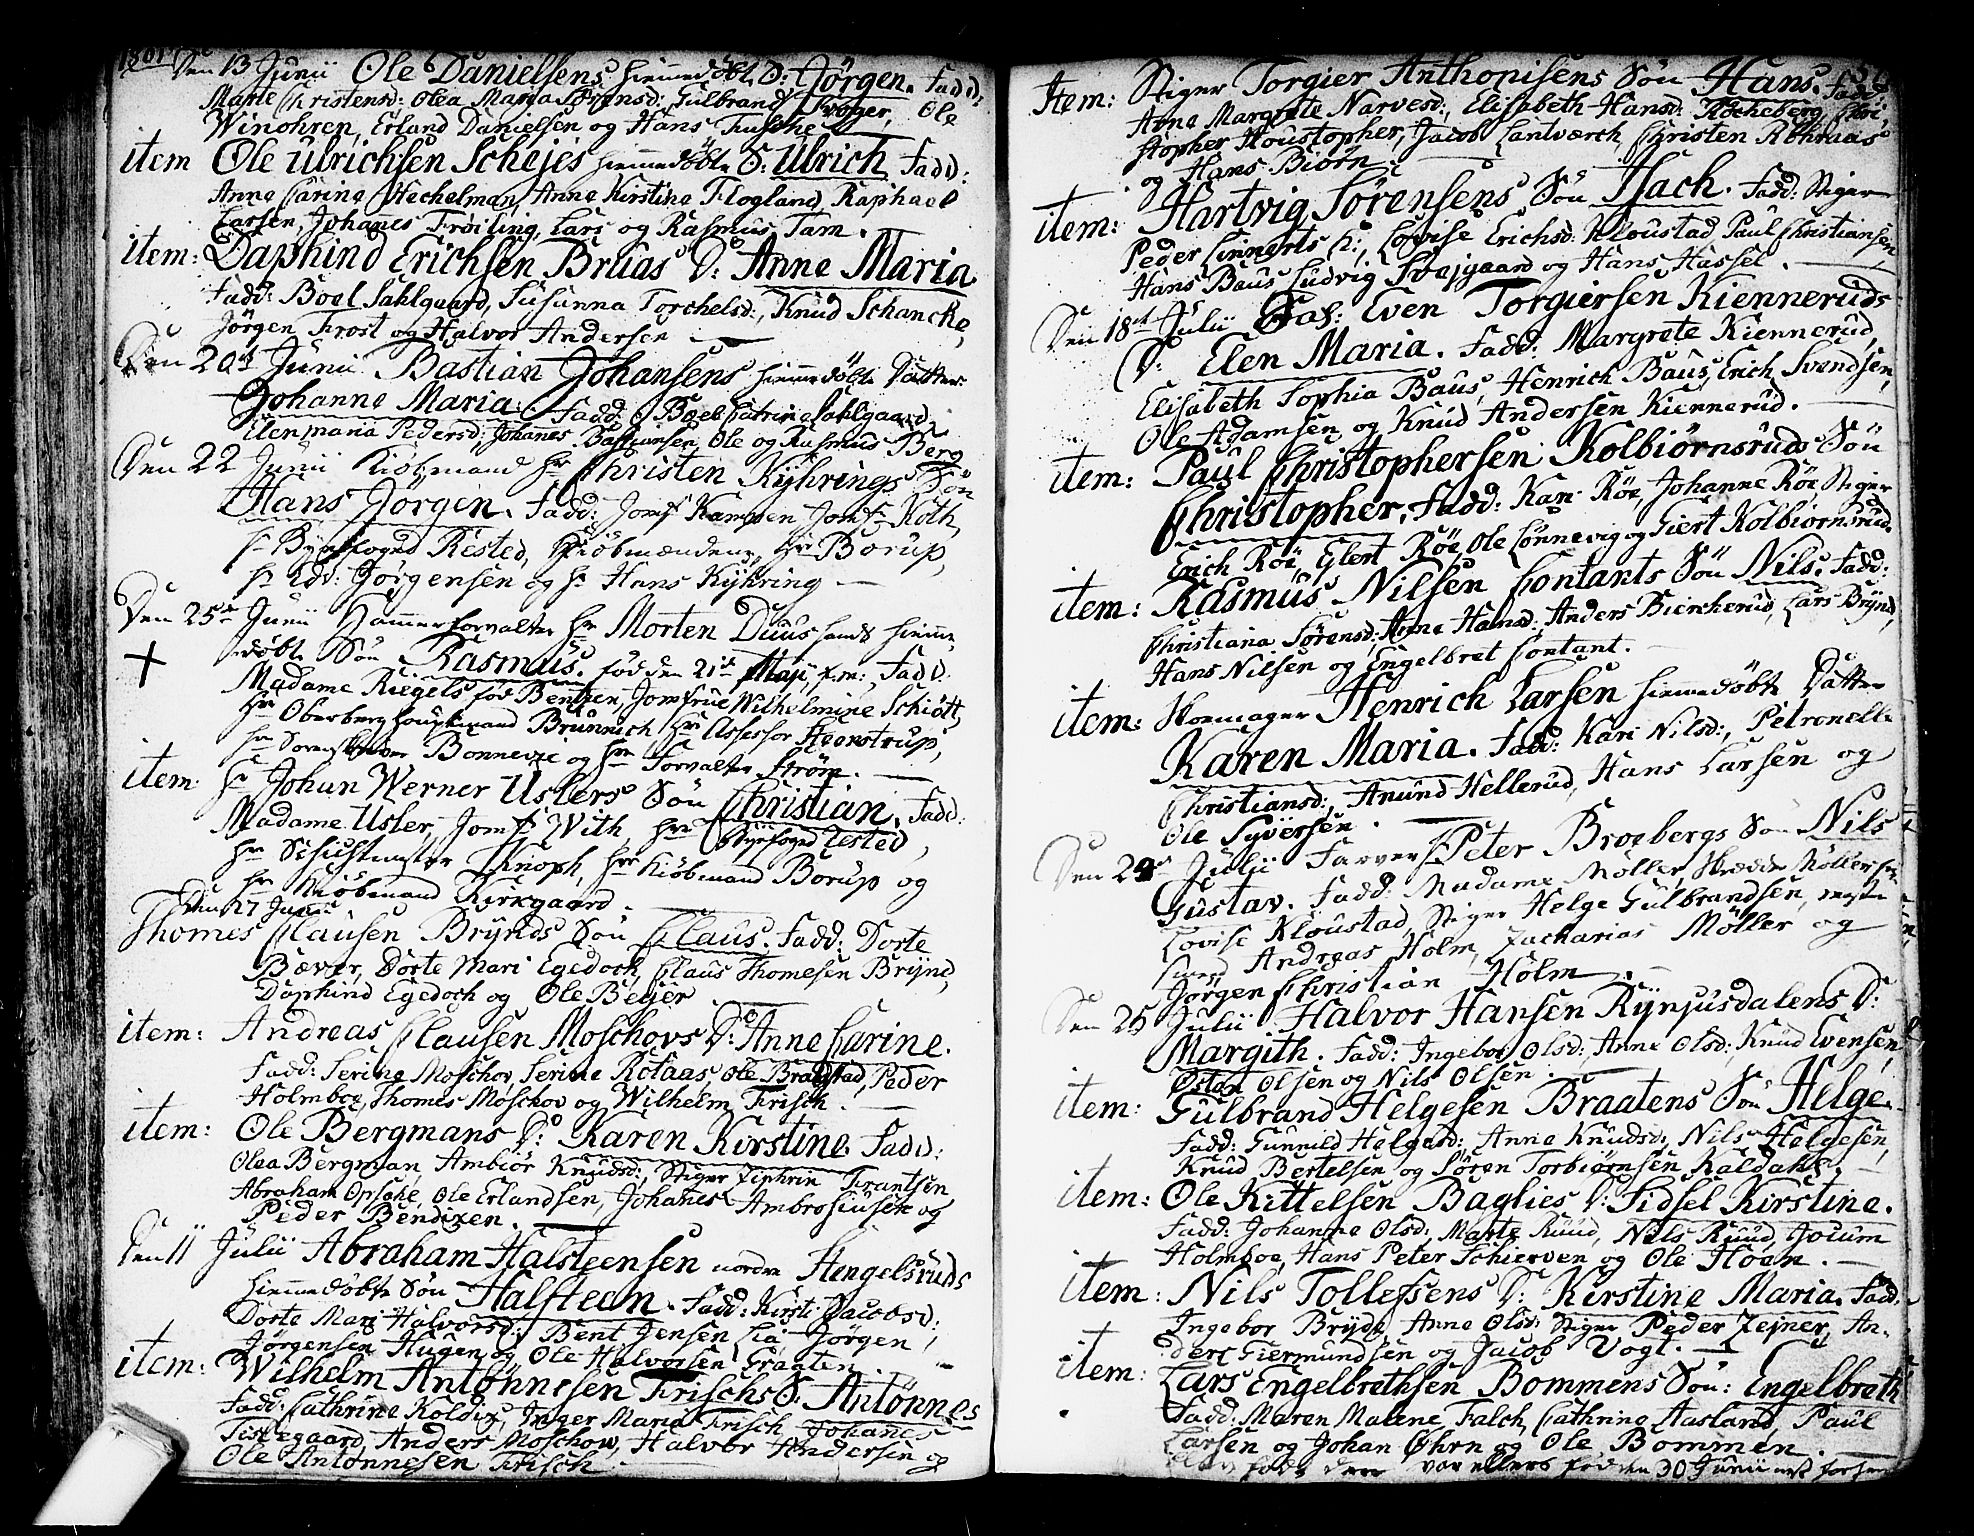 1801
Den 13 Junii Ole Danielsens hiemmedøbte S: Jörgen. Fadd:
Marie Christensd: Olea Maria Sørensd: Gulbrand Svoger, Ole
Winohren, Erland Danielsen og Hans Fusche
item Ole Ulrichsen Schejes hiemmedøbte S: Ulrich Fadd:
Anne Carine Hechelman, Anne Kirstine Flogland, Raphael
Larsen, Johannes Frøiling, Lars og Rasmus Tam.
item: Daphind Erichsen Bruas D: Anne Maria
Fadd: Boel Sahlgaard, Susanna Torchelsd:, Knud Schancke,
Jörgen Frost og Halvor Andersen
Den 20de Junii Bastian Johansens hiemmedøbte Datter
Johanne Maria. Fadd: Boel Catrine Sahlgaard,
Elen maria Pedersd: Johanes Bastiansen, Ole og Rasmus Berg
Den 22 Junii Kiöbmand Hr Christen Kyhrings Søn
Hans Jörgen. Fadd: Jomf Kampen Jomfr Koth,
Hr Byefoged Rested, Kiöbmændene, Hr Borup,
Hr Edv: Jörgensen og Hr Hans Kyhring
Den 25de Junii Hammerforvalter Hr Morten Duus hands hiemme-
døbte Søn Rasmus. fød den 21de Maji, f.m:, Fadd:
Madame Riegels fød Bentzen, Jomfrue Wilhelmine Schiött,
Hr Oberberghouptmand Brünnich Hr Assessor Heenstrup,
Hr Sorenskriver Bonnevie og Hr Forvalter Strøm.
item Hr Johan Werner Uslers Søn Christian. Fadd:
Madame Usler, Jomfr With, Hr Byefoged Rested,
Hr Schichtmester Knoph, Hr Kiöbmand Borup og
Hr Kiöbmand Kirkgaard.
Den 27 Junii
Thomes Clausen Brynds Søn Claus. Fadd: Dorte
Bæver, Dorte Mari Egedoch, Claus Thomesen Brynd,
Daphind Egedoch og Ole Beyer
item: Andreas Clausen Moschovs D: Anne Carine.
Fadd: Serine Moschov, Serine Rotaas, Ole Bralstad, Peder
Holmboe, Thomes Moschov og Wilhelm Frisch.
item: Ole Bergmans D: Karen Kirstine. Fadd:
Olea Bergman Ambiör Knudsd:, Stiger Ziphrin Frantsen,
Abraham Opsahe, Ole Erlandsen, Johannes Ambrosiusen og
Peder Bendixen.
Den 11 Julii Abraham Halsteensen nordre Hengelsruds
hiemmedøbte Søn Halsteen. Fadd: Kirsti Jacobsd:
Dorte Mari Halvorsd: Bent Jensen Lia Jörgen
Jørgensen Hugen og Ole Halvorsen Graaten
item: Wilhelm Antønnesen Frischs S. Antønnes
Fadd: Cathrine Koldix, Inger Maria Frisch Johannes
Fiskegaard, Anders Moschow, Halvor Andersen og
Ole Antønnesen Frisch.
Item: Stiger Torgier Anthonisens Søn Hans. Fadd:
Anne Margrete Narvesd:, Elisabeth Hansd: Rocheberg, Chri-
stopher Houstopher, Jacob Lantværch Christen Abhraas
og Hans Biörn
item: Hartvig Sørensens Søn Jach. Fadd: Stiger
Peder Linnerts K:, Lovise Erichsd: Kloustad Paul Christiansen,
Hans Baus Ludvig Svajgaard og Hans Hassel.
Den 18de Julii Gas: Even Torgiersen Kienneruds
D: Elen Maria. Fadd: Margrete Kiennerud,
Elisabeth Sophia Baus, Henrich Baus, Erich Svendsen,
Ole Adamsen og Knud Andersen Kiennerud.
item: Paul Christophersen Kolbiörnsruds Søn
Christopher. Fadd: Kari Röe, Johanne Röe, Stiger
Erich Röe, Elert Röe, Ole Lönnevig og Giert Kolbiörnsrud.
item: Rasmus Nilsen Contants Søn Nils. Fadd:
Christiana Sörensd: Anne Hansd: Anders Biercherud, Lars Brynd,
Hans Nilsen og Engelbret Contant.
item: Skoemager Henrich Larsen hiemmedøbte Datter
Karen Maria. Fadd: Kari Nilsd:, Petronelle
Christiansd:, Anund Hellerud, Hans Larsen og
Ole Syversen.
Den 24de Julii Farver Hr Peter Broebergs Søn Nils
Gustav. Fadd: Madame Möller, Skrædder Möllers
Lovise Kloustad, Stiger Helge Gulbrandsen, mester
Andreas Holm, Zacharias Möller og
Jörgen Christian Holm
Den 25 Julii Halvor Hansen Rynjusdalens D:
Margith. Fadd: Ingebor Olsd: Anne Olsd: Knud Evensen
Østen Olsen og Nils Olsen.
item: Gulbrand Helgesen Braatens Søn Helge.
Fadd: Gunnild Helgesd:, Anne Knudsd:, Nils Helgesen,
Knud Bertelsen og Sören Torbiørnsen Kaldahl.
item: Ole Kittelsen Baglies D: Sidsel Kirstine.
Fadd: Johanne Olsd:, Marte Ruud, Nils Ruud, Jocum
Holmboe, Hans Peter Schierven og Ole Hoen.
item: Nils Tollefsens D: Kirstine Maria. Fadd:
Ingebor Bryde, Anne Olsd: Stiger Peder Zejner, An-
ders Giermundsen og Jacob Vogt.
item: Lars Engelbrethsen Bommens Søn: Engelbreth
Fadd: Maren Malene Falch, Cathrine Aasland, Paul
Larsen og Johan Øhrn og Ole Bommen.
fød den 30 Junii